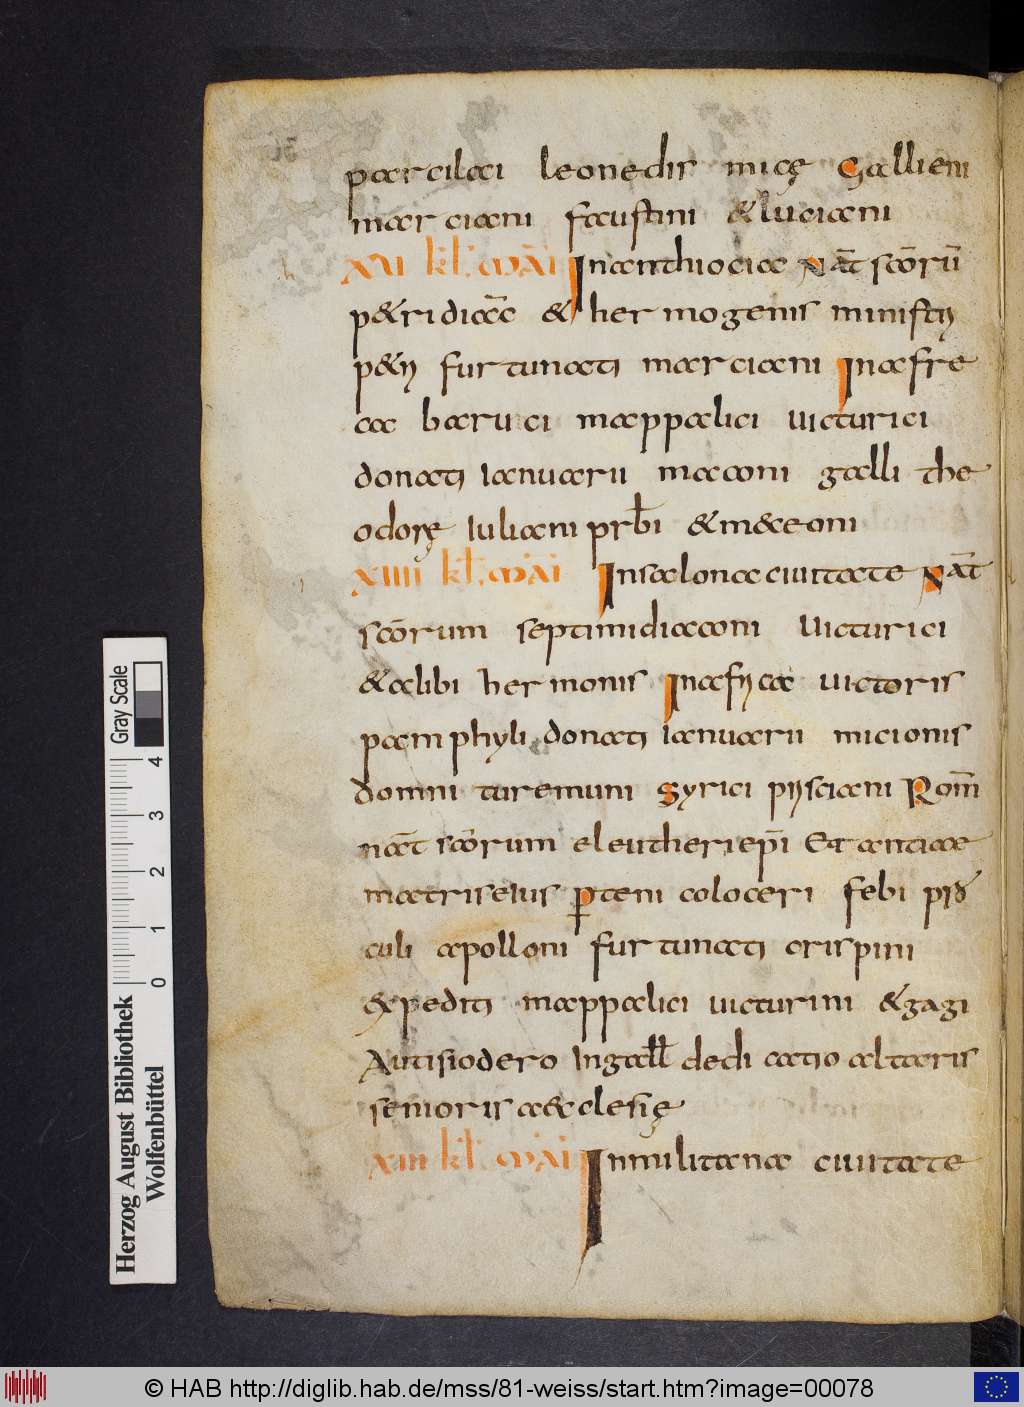 parcilaci leonedis micę Gallieni
marciani faustini & luciani
XVI kł. mai Inanthiociae nāt scōrū
p&ri diacc̄ & hermogenis ministri
p&ri furtunati marciani Inafre
ca baruci mappalici uicturici
donati ianuarii macconi galli the
odorę iuliani prb̄i & m&ceoni
XIIII kł. mai Insalona ciuitate nat̄
scōrum septimi diacconi uicturici
& alibi hermonis Inafrica uictoris
pamphyli donati ianuarii micionis
domni turemuni Syrici prisciani Rom̄
nat̄ scōrum eleutheri ep̄i Et antiae
matris eius parteni coloceri febi pro
culi apolloni furtunati crispini
&xpediti mappalici uicturini & gagi
Autisiodero Ingall̄ dedicatio altaris
senioris aecclesię
XIII kł. mai Inmilitana ciuitate
Gray Scale
4
3
2
1
0
Herzog August Bibliothek
Wolfenbüttel
© HAB http://diglib.hab.de/mss/81-weiss/start.htm?image=00078